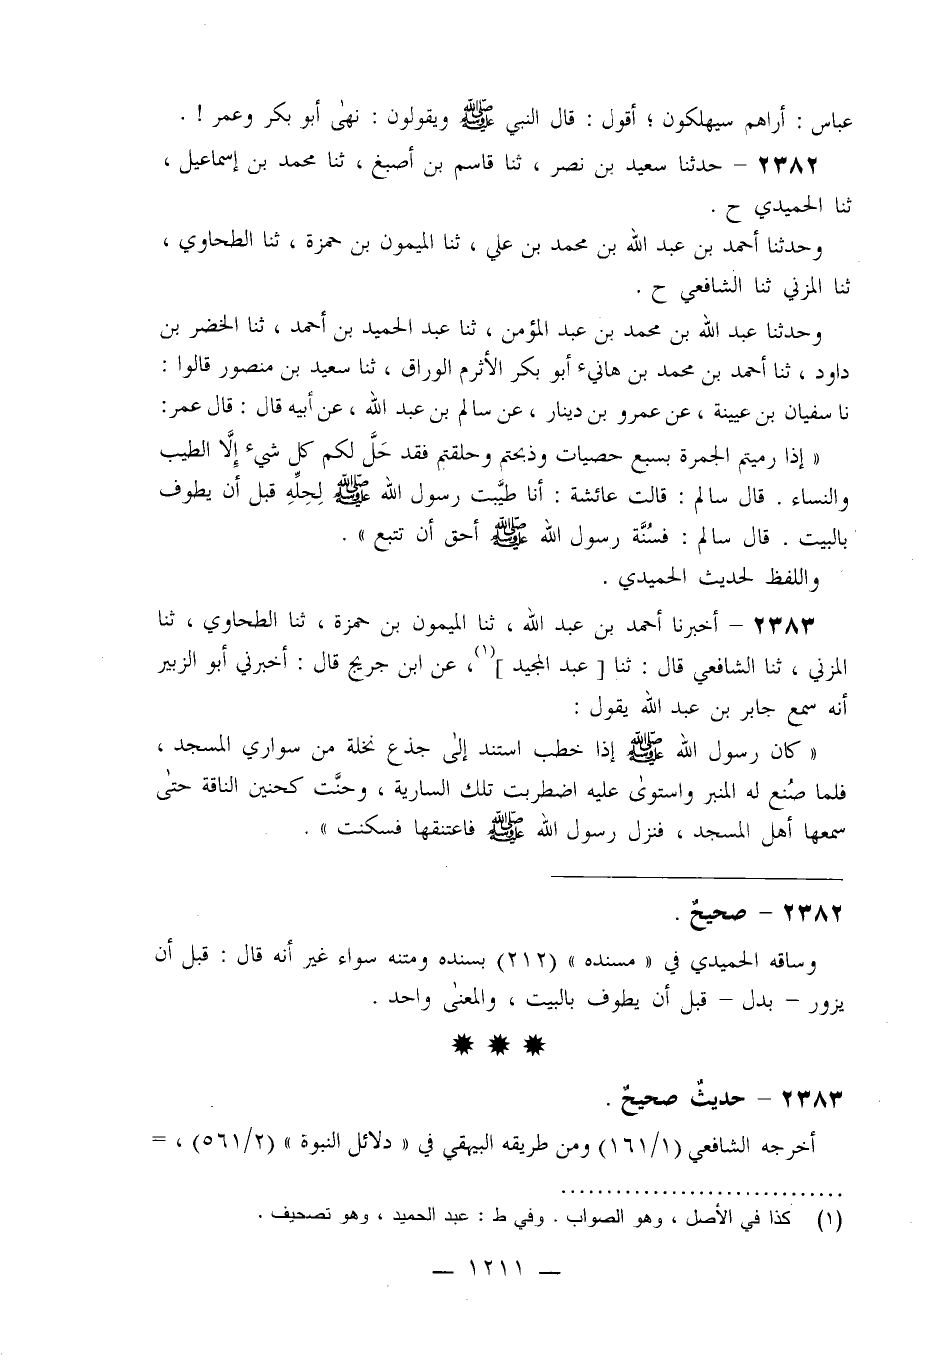 عباس : أراهم سيهلكون ؛ أقول : قال النبي ﷺ ويقولون : نهىٰ أبو بكر وعمر ! .
٢٣٨٢ – حدثنا سعيد بن نصر ، ثنا قاسم بن أصبغ ، ثنا محمد بن إسماعيل ،
ثنا الحميدي ح .
وحدثنا أحمد بن عبد الله بن محمد بن علي ، ثنا الميمون بن حمزة ، ثنا الطحاوي ،
ثنا المزني ثنا الشافعي ح .
وحدثنا عبد الله بن محمد بن عبد المؤمن ، ثنا عبد الحميد بن أحمد ، ثنا الخضر بن
داود ، ثنا أحمد بن محمد بن هانيء أبو بكر الأثرم الوراق ، ثنا سعيد بن منصور قالوا :
نا سفيان بن عيينة ، عن عمرو بن دينار ، عن سالم بن عبد الله ، عن أبيه قال : قال عمر:
« إذا رميتم الجمرة بسبع حصيات وذبحتم وحلقتم فقد حَلَّ لكم كل شيء إِلَّا الطيب
والنساء . قال سالم : قالت عائشة : أنا طيَّبت رسول الله ﷺ لِحِلِّهِ قبل أن يطوف
بالبيت . قال سالم : فسُنَّة رسول الله ﷺ أحق أن تتبع » .
واللفظ لحديث الحميدي .
٢٣٨٣ – أخبرنا أحمد بن عبد الله ، ثنا الميمون بن حمزة ، ثنا الطحاوي ، ثنا
المزني ، ثنا الشافعي قال : ثنا [ عبد المجيد ](١)، عن ابن جريج قال : أخبرني أبو الزبير
أنه سمع جابر بن عبد الله يقول :
« كان رسول الله ﷺ إذا خطب استند إلىٰ جذع نخلة من سواري المسجد ،
فلما صُنع له المنبر واستوىٰ عليه اضطربت تلك السارية ، وحنَّت كحنين الناقة حتىٰ
سمعها أهل المسجد ، فنزل رسول الله ﷺ فاعتنقها فسكنت » .
٢٣٨٢ – صحيحٌ .
وساقه الحميدي في « مسنده » (٢١٢) بسنده ومتنه سواء غير أنه قال : قبل أن
يزور – بدل – قبل أن يطوف بالبيت ، والمعنىٰ واحد .
٢٣٨٣ – حديثٌ صحيحٌ .
أخرجه الشافعي (١/١٦١) ومن طريقه البيهقي في « دلائل النبوة » (٢/٥٦١) ، =
(١) كذا في الأصل ، وهو الصواب . وفي ط : عبد الحميد ، وهو تصحيف .
— ١٢١١ —